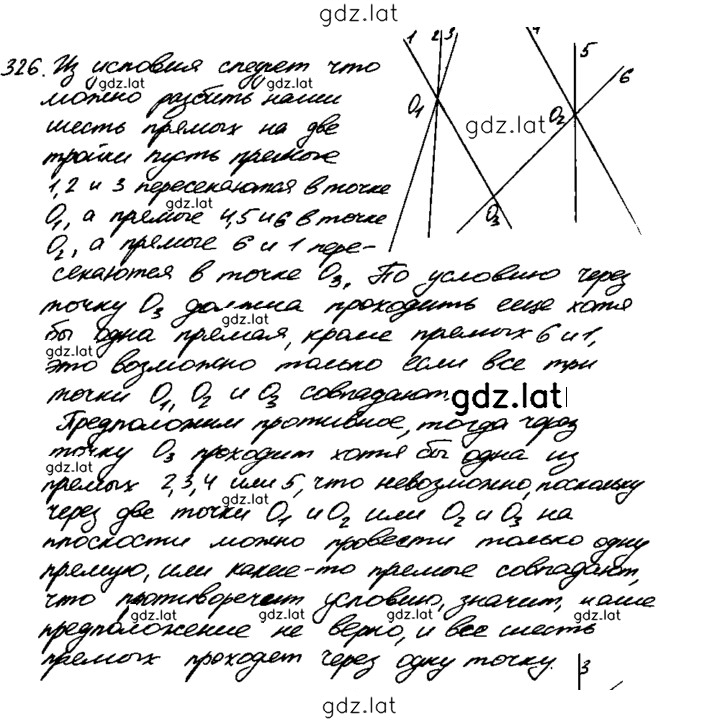 gdz.lat
326. Из условия следует что
можно разбить наши
шесть прямых на две
тройки пусть прямые
1, 2 и 3 пересекаются в точке
O1, а прямые 4, 5 и 6 в точке
O2, а прямые 6 и 1 пере-
секаются в точке O3. По условию через
точку O3 должна проходить еще хотя
бы одна прямая, кроме прямых 6 и 1,
это возможно только если все три
точки O1, O2 и O3 совпадают.
Предположим противное, тогда через
точку O3 проходит хотя бы одна из
прямых 2, 3, 4 или 5, что невозможно, поскольку
через две точки O1 и O2 или O2 и O3 на
плоскости можно провести только одну
прямую, или какие-то прямые совпадают,
что противоречит условию, значит, наше
предположение не верно, и все шесть
прямых проходят через одну точку.
1 2 3
O1
O3
4
5
6
O2
gdz.lat
gdz.lat
gdz.lat
gdz.lat
gdz.lat
gdz.lat
gdz.lat
gdz.lat
gdz.lat
gdz.lat
gdz.lat
gdz.lat
3
gdz.lat